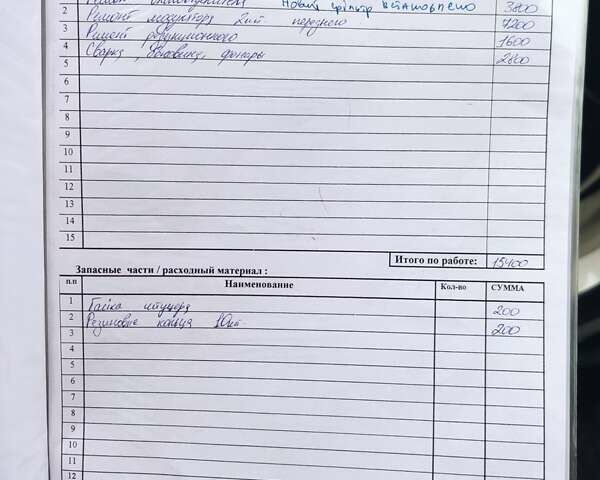 Новий фільтр встановлено
2 3800
Ремонт модулятора 2шт. переднего 7200
3 Ремонт редукционного 1600
4 Сварка, фонары 2800
5
6
7
8
9
10
11
12
13
14
15
Итого по работе: 15400
Запасные части / расходный материал :
п.п Наименование Кол-во СУММА
1 Гайка штуцера 200
2 Резиновые кольца 10шт. 200
3
4
5
6
7
8
9
10
11
12